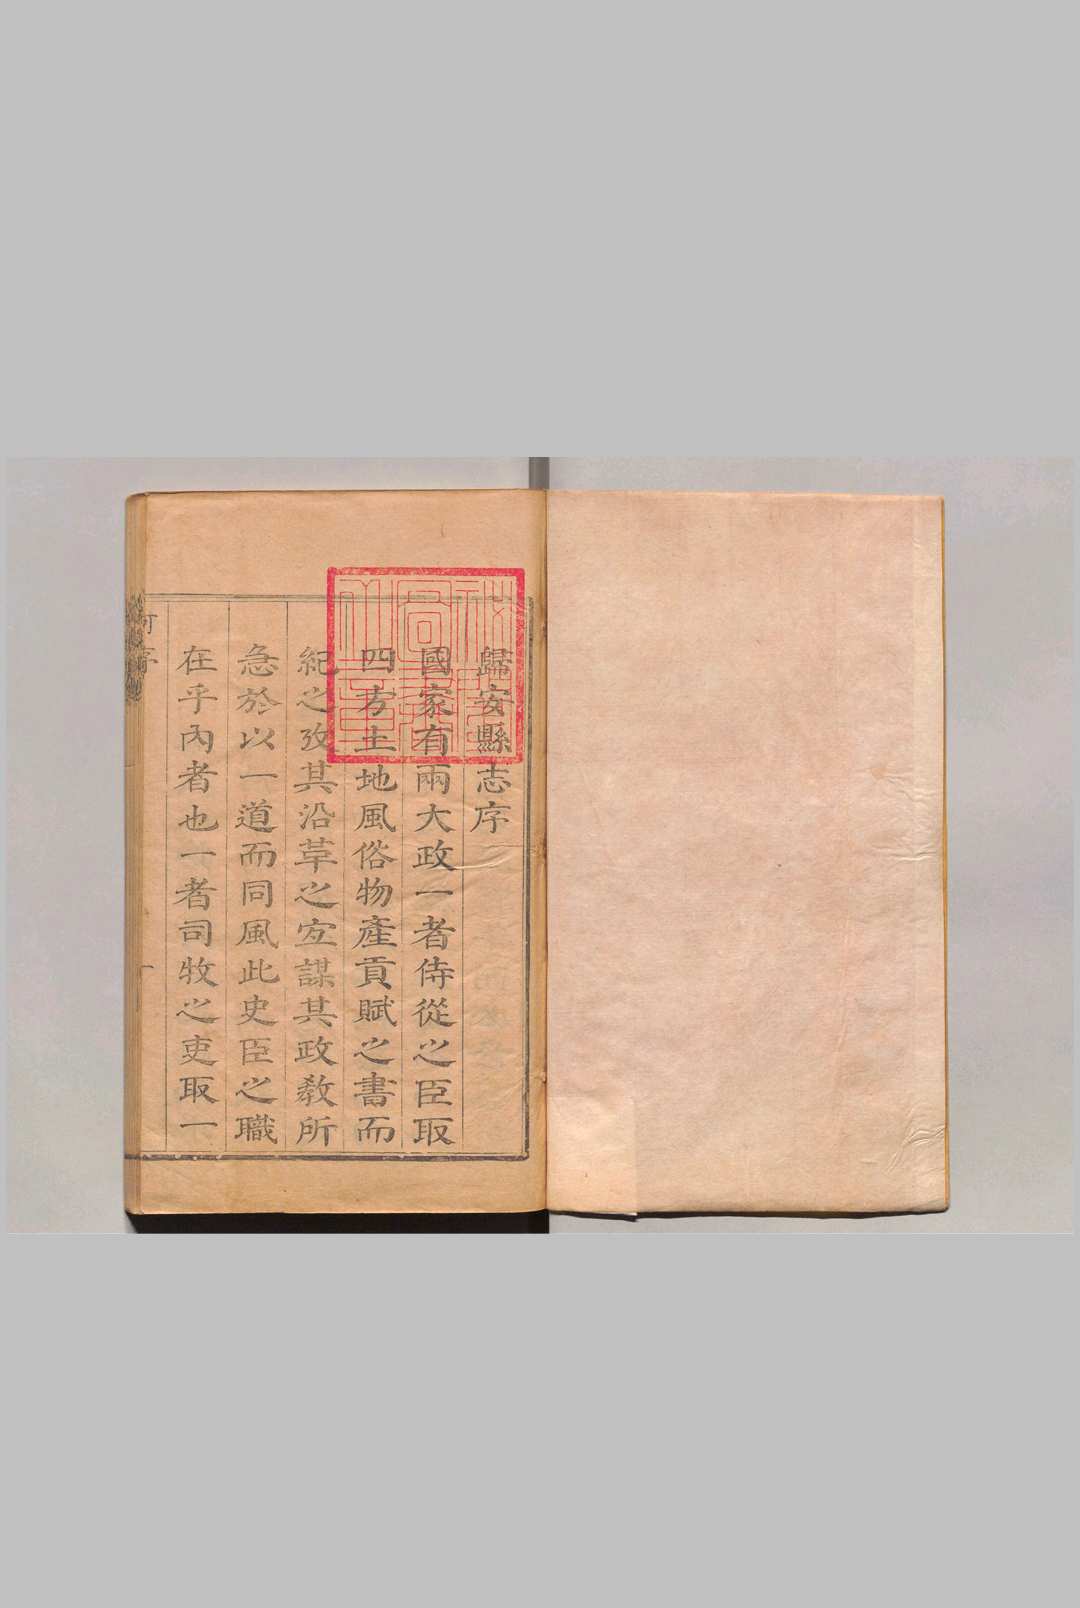 歸安縣志序
國家有兩大政一者侍從之臣取
四方土地風俗物產貢賦之書而
紀之攷其沿革之宐謀其政敎所
急於以一道而同風此史臣之職
在乎內者也一者司牧之吏取一
序